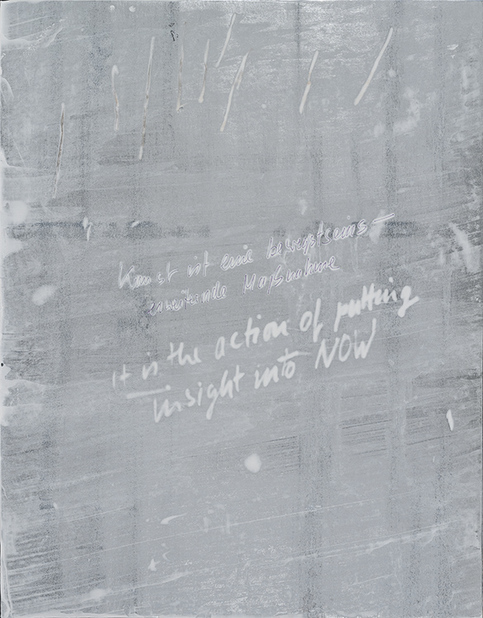 Kunst ist eine
it is the action of putting
insight into NOW